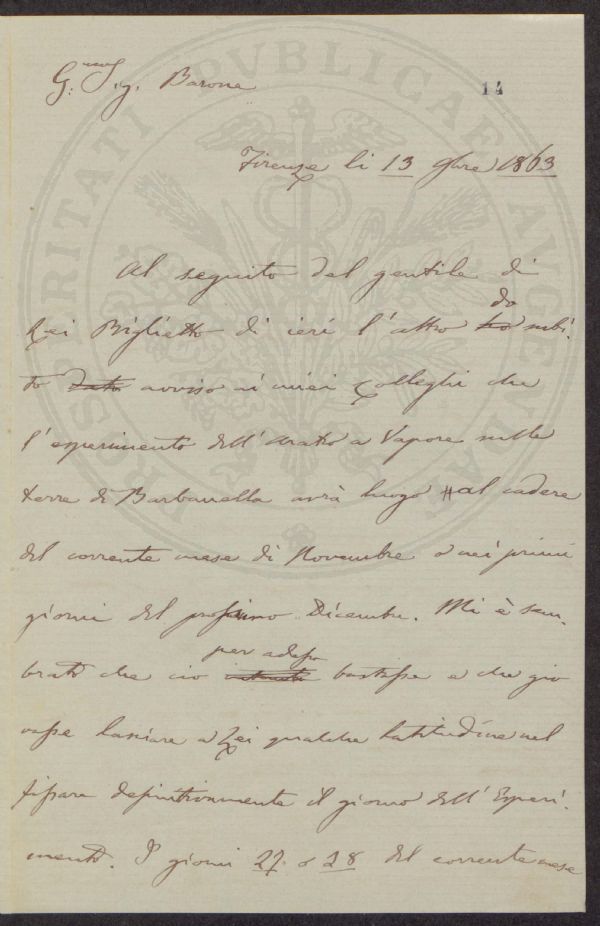 G.mo Sig. Barone
14
Firenze li 13 9bre 1863
Al seguito del gentile di
Lei Biglietto di ieri l'altro ho do subi-
to dato avviso ai miei Colleghi che
l'esperimento dell'aratro a Vapore nelle
terre di Barbanella avrà luogo al cadere
del corrente mese di Novembre o nei primi
giorni del prossimo Dicembre. Mi è sem-
brato che ciò per adesso bastasse e che gio
vasse lasciare a Lei qualche latitudine nel
fissare definitivamente il giorno dell'Esperi-
mento. I giorni 27 o 28 del corrente mese
PROSPERITATI PVBLICAE AVGENDAE